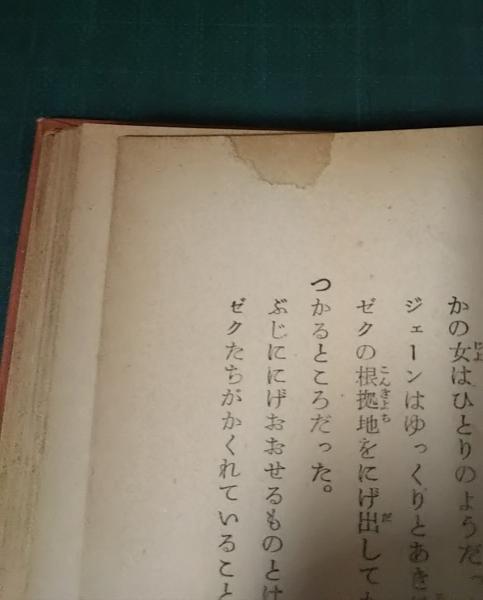 かの女はひとりのようだっ
ジェーンはゆっくりとあき
ゼクの根拠地をにげ出しても
つかるところだった。
ぶじににげおおせるものとは
ゼクたちがかくれていること